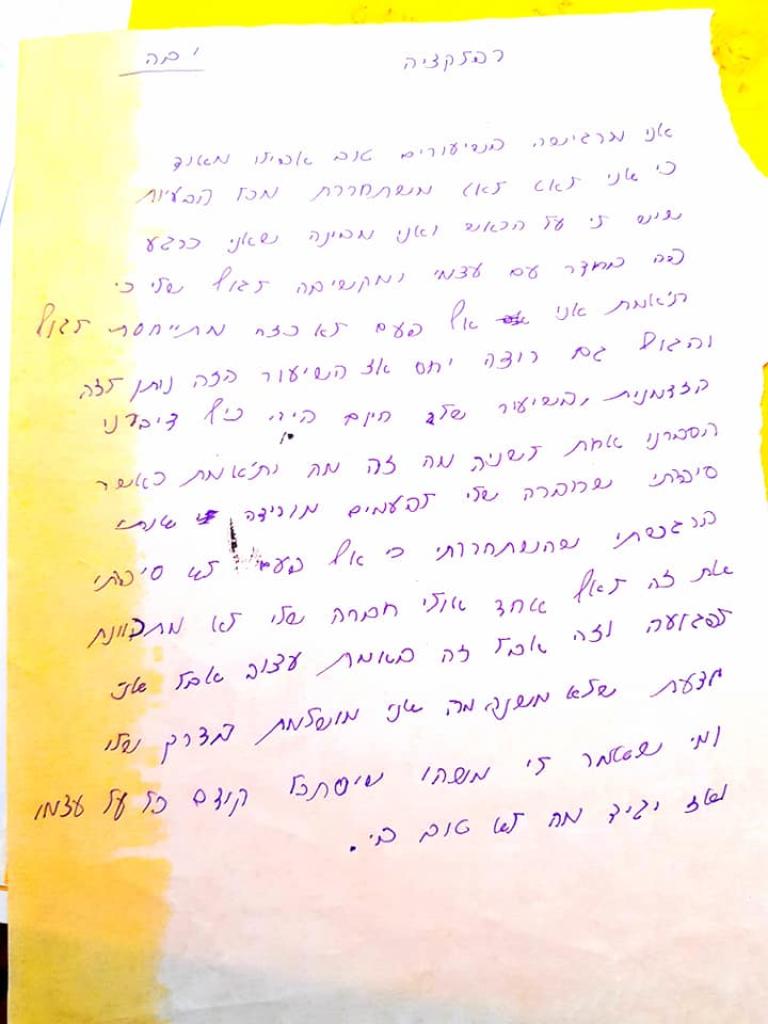 רפלקציה יפה
אני מרגישה בשיעורים טוב אפילו מאוד
כי אני לאט לאט משתחררת מכל הבעיות
שיש לי על הראש ואני מבינה שאני כרגע
פה בחדר עם עצמי ומקשיבה לגוף שלי כי
לאמת אני אף פעם לא ככה מתייחסת לגוף
והגוף גם רוצה יחס אז השיעור הזה נותן לזה
הזדמנות ,בשיעור של היום היה כיף דיברנו
הסברנו אחת לשניה מה זה מה ותאמת כאשר
סיפרתי שחברה שלי לפעמים מורידה אותי
הרגשתי שהשתחררתי כי אף פעם לא סיפרתי
את זה לאף אחד אולי חברה שלי לא מתכוונת
לפגועה וזה אבל זה באמת עצוב אבל אני
יודעת שלא משנה מה אני מושלמת בדרך שלי
ומי שאומר לי משהו שיסתכל קודם כל על עצמו
ואז יגיד מה לא טוב בי.